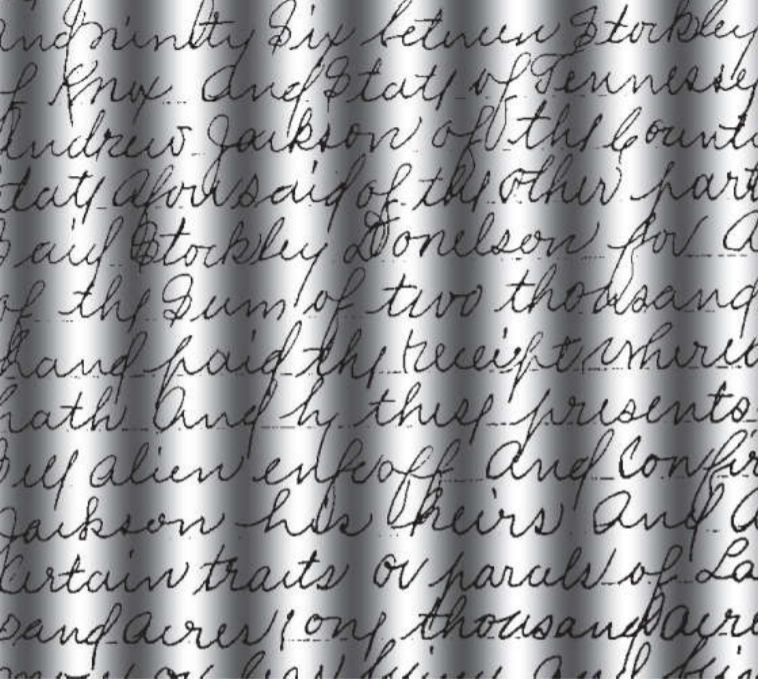 and ninty Six between Stockley
of Knox and State of Tennessey
Andrew Jackson of the Count
State aforesaid of the other part
Said Stockley Donelson for a
of the Sum of two thousand
hand paid the receipt where
hath and by these presents
Sell alien enfeoff and Confir
Jackson his heirs and a
Certain tracts or parcels of La
sand acres one thousand acre